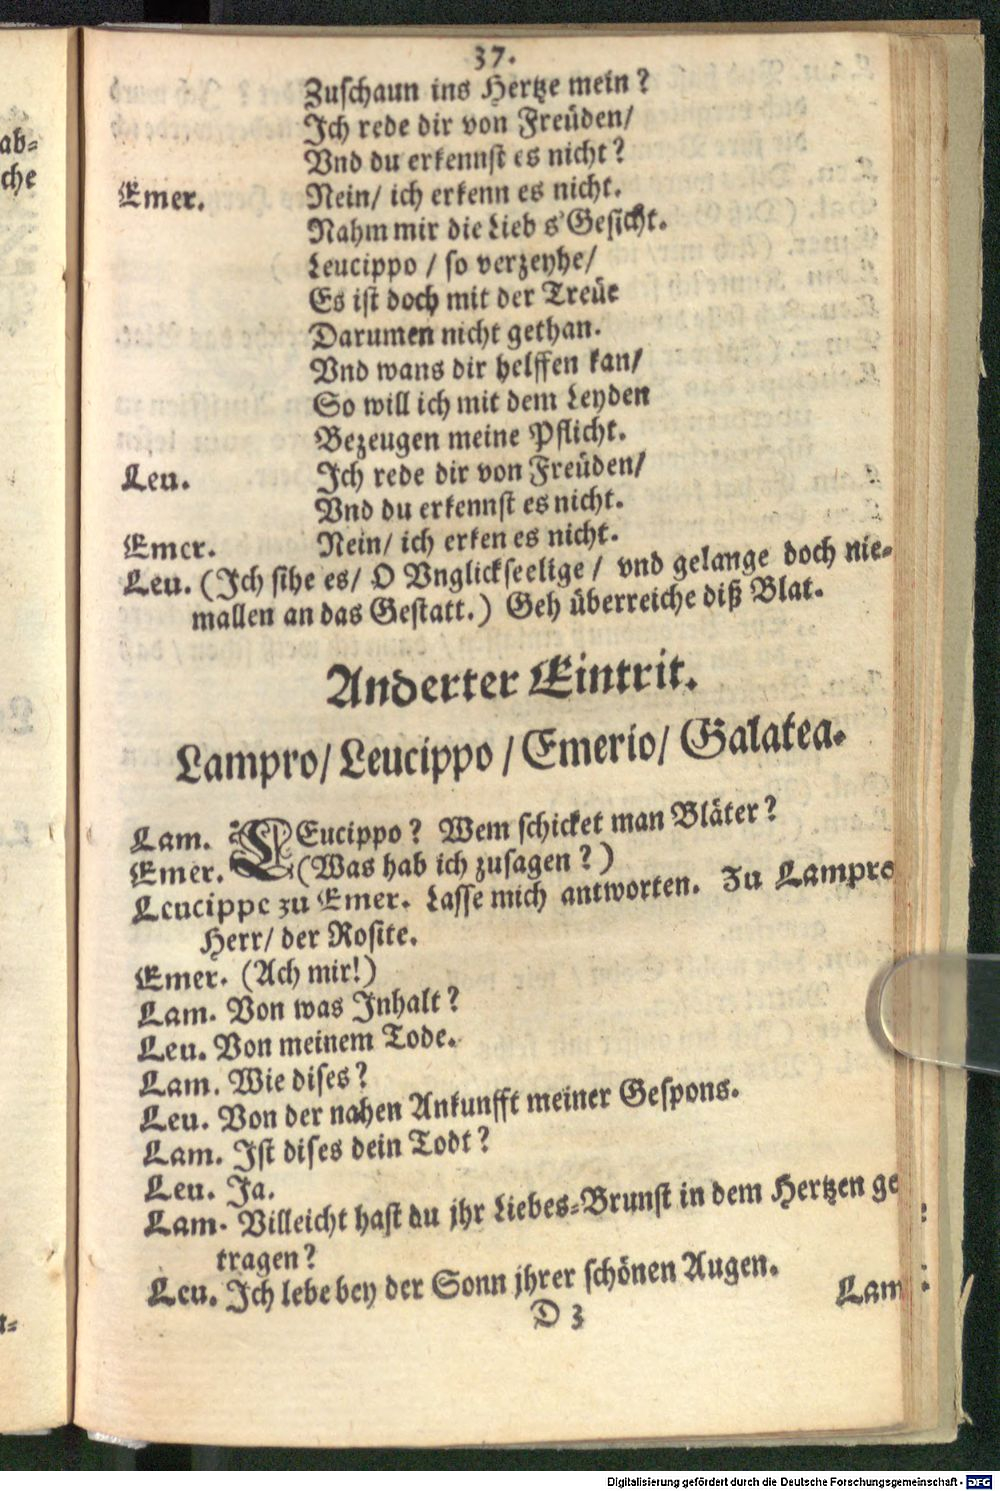 37.
Zuschaun ins Hertze mein?
Ich rede dir von Freüden/
Vnd du erkennst es nicht?
Emer. Nein/ ich erkenn es nicht.
Nahm mir die Lieb s'Gesicht.
Leucippo / so verzeyhe/
Es ist doch mit der Treüe
Darumen nicht gethan.
Vnd wans dir helffen kan/
So will ich mit dem Leyden
Bezeugen meine Pflicht.
Leu. Ich rede dir von Freüden/
Vnd du erkennst es nicht.
Emer. Nein/ ich erken es nicht.
Leu. (Ich sihe es/ O Vnglickseelige / vnd gelange doch nie=
mallen an das Gestatt.) Geh überreiche diß Blat.
Anderter Eintrit.
Lampro/ Leucippo / Emerio/ Galatea.
Lam. LEucippo? Wem schicket man Bläter?
Emer. (Was hab ich zusagen?)
Leucippe zu Emer. Lasse mich antworten. Zu Lampro
Herr/ der Rosite.
Emer. (Ach mir!)
Lam. Von was Inhalt?
Leu. Von meinem Tode.
Lam. Wie dises?
Leu. Von der nahen Ankunfft meiner Gespons.
Lam. Ist dises dein Todt?
Leu. Ja.
Lam. Villeicht hast du jhr Liebes=Brunst in dem Hertzen ge
tragen?
Leu. Ich lebe bey der Sonn jhrer schönen Augen.
D 3 Lam
ab=
che
Digitalisierung gefördert durch die Deutsche Forschungsgemeinschaft - DFG